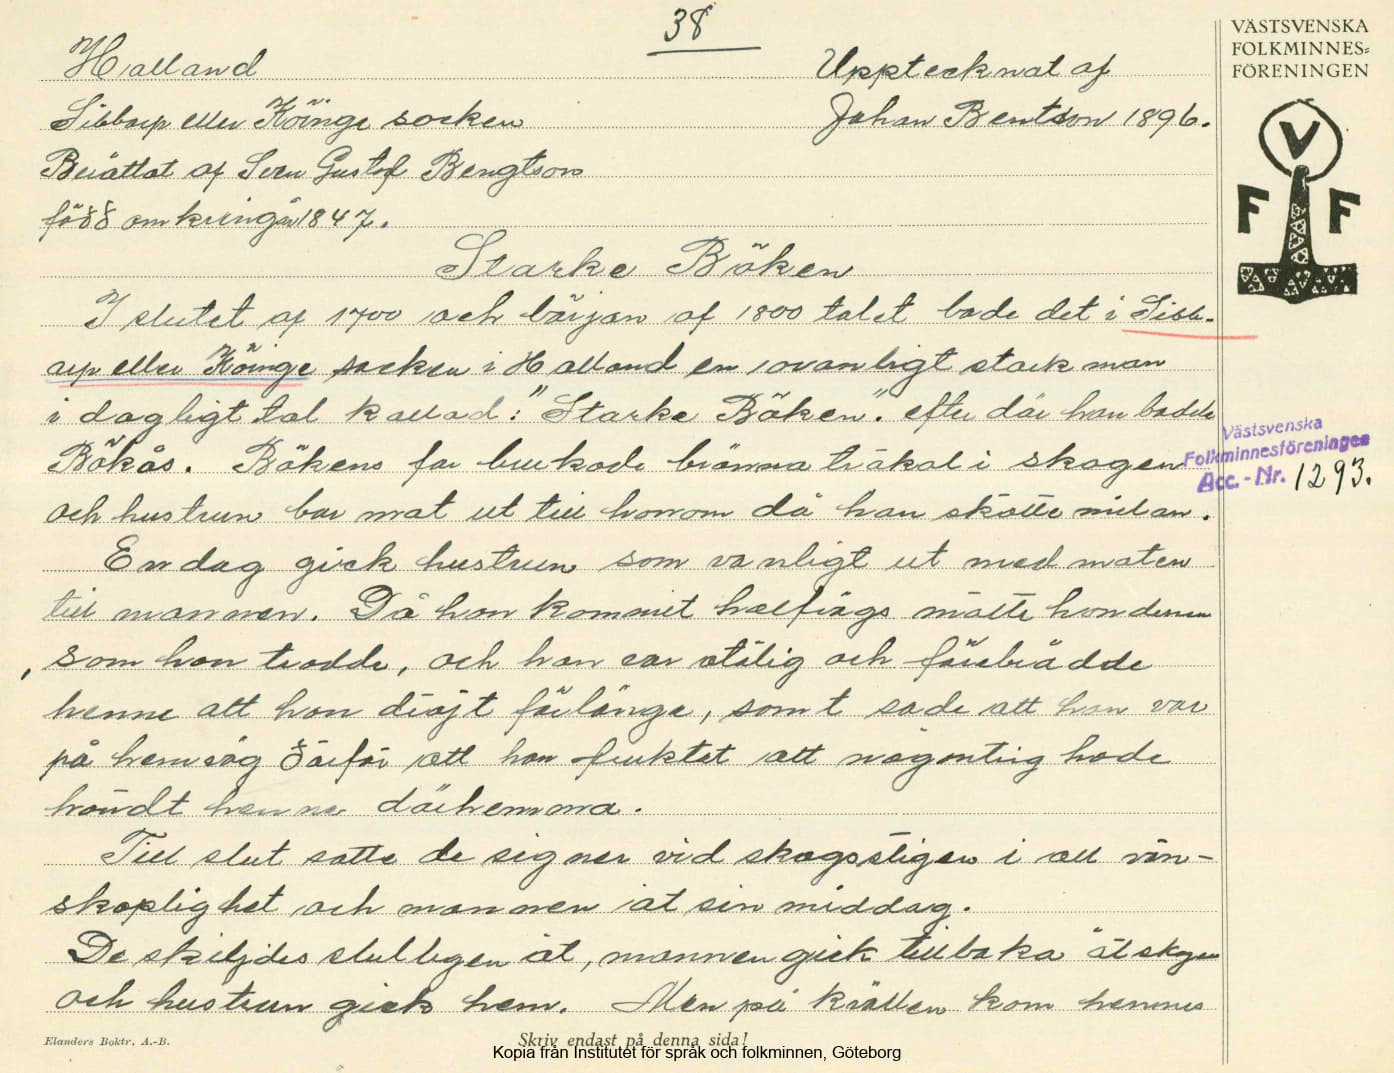 38
VÄSTSVENSKA
FOLKMINNES-
FÖRENINGEN
V
F F
Halland
Upptecknat af
Sibbarp eller Köinge socken
Johan Bentson 1896.
Berättat af Sven Gustaf Bengtson
född omkring år 1847.
Starke Böken
I slutet af 1700 och början af 1800 talet bode det i Sibb-
arp eller Köinge socken i Halland en ovanligt stark man
i dagligt tal kallad: "Starke Böken". efter där han bodde
Bökås. Bökens far brukade bränna träkol i skogen
och hustrun bar mat ut till honom då han skötte milan.
Västsvenska
Folkminnesföreningen
Acc.-Nr. 1293.
En dag gick hustrun som vanligt ut med maten
till mannen. Då hon kommit halfvägs mötte hon denne
, som hon trodde, och han var otålig och förebrådde
henne att hon dröjt förlänge, samt sade att han var
på hemväg därför att han fruktat att någonting hade
händt henne därhemma.
Till slut satte de sig ner vid skogsstigen i all vän-
skaplighet och mannen åt sin middag.
De skiljdes slutligen åt, mannen gick tillbaka åt skogen
och hustrun gick hem. Men på kvällen kom hennes
Elanders Boktr. A.-B.
Skriv endast på denna sida!
Kopia från Institutet för språk och folkminnen, Göteborg